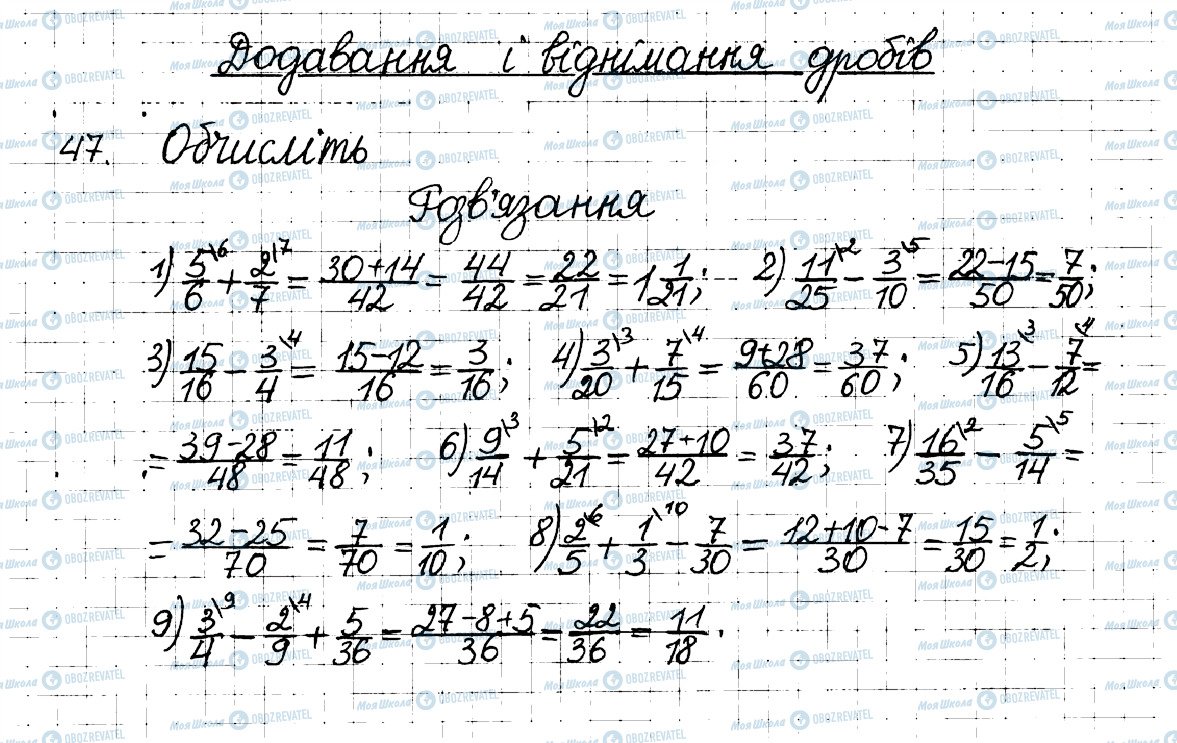 Додавання і віднімання дробів
47. Обчисліть
Розв'язання
1) 5\6/6 + 2\7/7 = (30+14)/42 = 44/42 = 22/21 = 1 1/21; 2) 11\2/25 − 3\5/10 = (22−15)/50 = 7/50;
3) 15/16 − 3\4/4 = (15−12)/16 = 3/16; 4) 3\3/20 + 7\4/15 = (9+28)/60 = 37/60; 5) 13\3/16 − 7\4/12 =
= (39−28)/48 = 11/48; 6) 9\3/14 + 5\2/21 = (27+10)/42 = 37/42; 7) 16\2/35 − 5\5/14 =
= (32−25)/70 = 7/70 = 1/10; 8) 2\6/5 + 1\10/3 − 7/30 = (12+10−7)/30 = 15/30 = 1/2;
9) 3\9/4 − 2\4/9 + 5/36 = (27−8+5)/36 = 22/36 = 11/18.
Моя Школа OBOZREVATEL